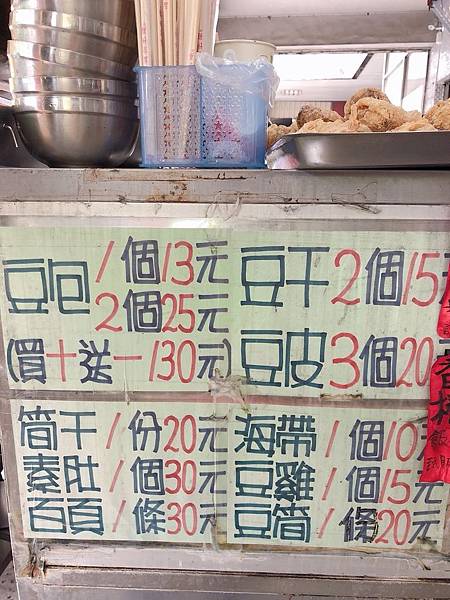 豆包1個13元
2個25元
(買十送一130元)
豆干2個15元
豆皮3個20
筒干1份20元
素肚1個30元
百頁1條30元
海帶1個10元
豆雞1個15元
豆筒1條20元
飯